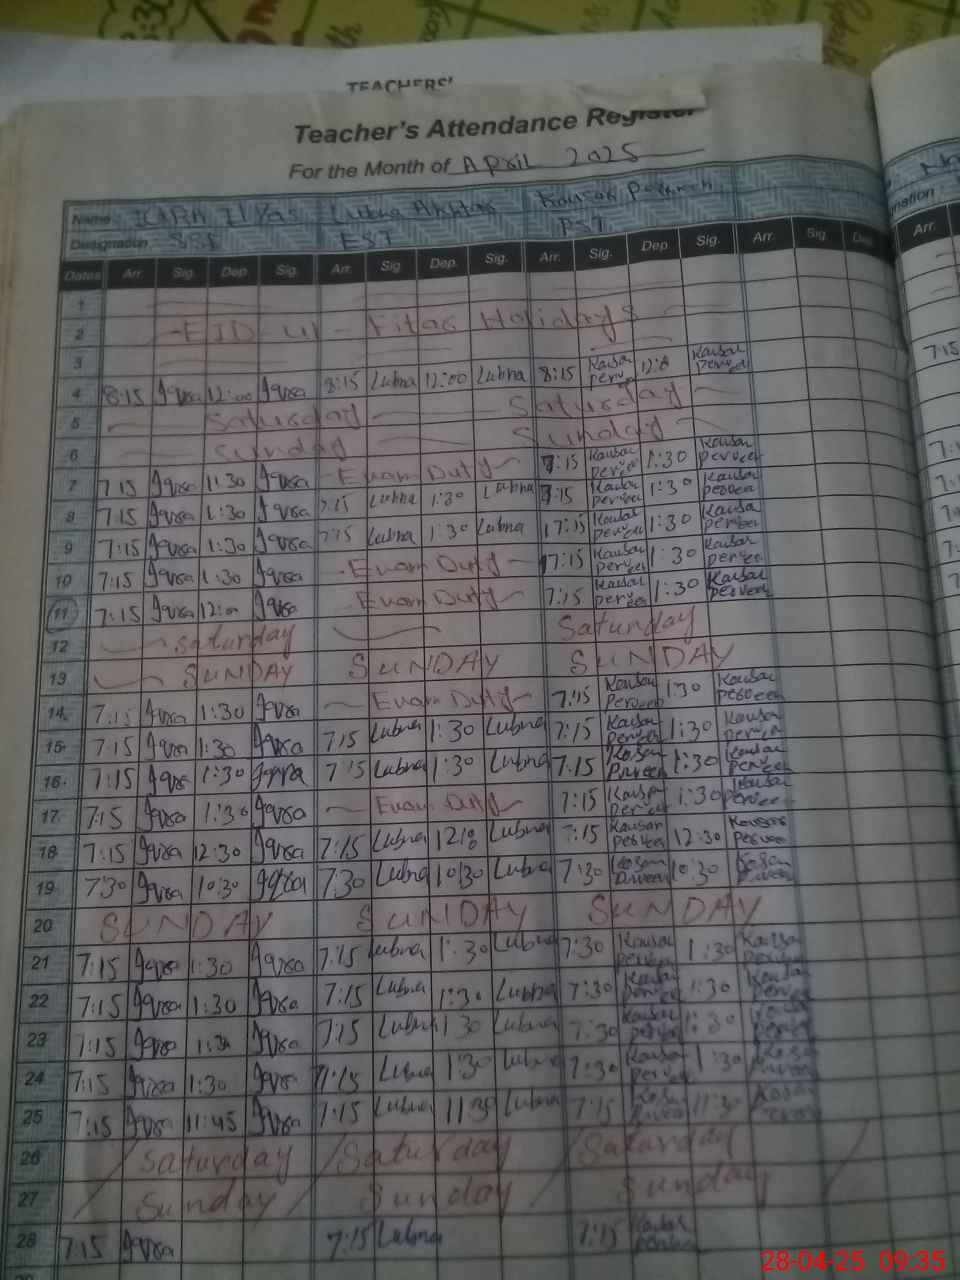 TEACHERS'
Teacher's Attendance Register
For the Month of April 2025
Name IQRA Ilyas Lubna Akhtar Kausar Perveen
Designation. SSE EST PST
Dates Arr. Sig. Dep. Sig. Arr. Sig Dep. Sig. Arr. Sig. Dep. Sig. Arr. Sig. Dep Arr.
1
2 EID ul - Fitar Holidays
3
4 8:15 Iqra 12:00 Iqra 8:15 Lubna 12:00 Lubna 8:15 Kausar perveen Kausar perveen
5 Saturday Saturday
6 Sunday Sunday
7 7:15 Iqra 1:30 Iqra Exam Duty 7:15 Kausar perveen 1:30 Kausar perveen
8 7:15 Iqra 1:30 Iqra 7:15 Lubna 1:30 Lubna 7:15 Kausar perveen 1:30 Kausar perveen
9 7:15 Iqra 1:30 Iqra 7:15 Lubna 1:30 Lubna 7:15 Kausar perveen 1:30 Kausar perveen
10 7:15 Iqra 1:30 Iqra Exam Duty 7:15 Kausar perveen 1:30 Kausar perveen
11 7:15 Iqra 12:00 Iqra Exam Duty 7:15 Kausar perveen 1:30 Kausar perveen
12 Saturday Saturday
13 SUNDAY SUNDAY SUNDAY
14 7:15 Iqra 1:30 Iqra Exam Duty 7:15 Kausar Perveen 1:30 Kausar Perveen
15 7:15 Iqra 1:30 Iqra 7:15 Lubna 1:30 Lubna 7:15 Kausar Perveen 1:30 Kausar perveen
16 7:15 Iqra 1:30 Iqra 7:15 Lubna 1:30 Lubna 7:15 Kosar Prveen 1:30 Kausar perveen
17 7:15 Iqra 1:30 Iqra Exam Duty 7:15 Kausar perveen 1:30 Kausar perveen
18 7:15 Iqra 12:30 Iqra 7:15 Lubna Lubna 7:15 Kausar perveen 12:30 Kausar perveen
19 7:30 Iqra 10:30 Iqra 7:30 Lubna 10:30 Lubna 7:30 Kosar Prveen 10:30 Kosar Prveen
20 SUNDAY SUNDAY SUNDAY
21 7:15 Iqra 1:30 Iqra 7:15 Lubna 1:30 Lubna 7:30 Kausar perveen 1:30 Kausar perveen
22 7:15 Iqra 1:30 Iqra 7:15 Lubna 1:30 Lubna 7:30 Kausar perveen 1:30 Kausar perveen
23 7:15 Iqra 1:30 Iqra 7:15 Lubna 1:30 Lubna 7:30 Kausar perveen 1:30 Kausar perveen
24 7:15 Iqra 1:30 Iqra 7:15 Lubna 1:30 Lubna 7:30 Kausar perveen 1:30 Kosar
25 7:15 Iqra 11:45 Iqra 7:15 Lubna 11:30 Lubna 7:15 Kosar Prveen 11:30 Kosar
26 Saturday Saturday Saturday
27 Sunday Sunday Sunday
28 7:15 Iqra 7:15 Lubna 7:15 Kausar perveen
28-04-25 09:35